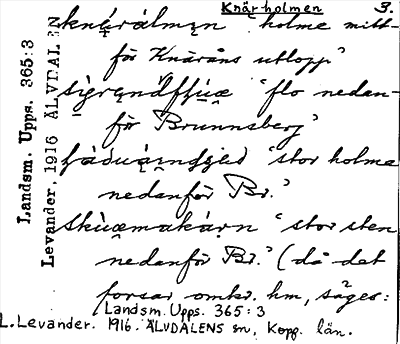 Knärholmen 3.
knä́rålmņ holme mitt-
för Knäråns utlopp"
"flo nedan-
för Brunnsberg"
"stor holme
nedanför Br."
skùæmakárn "stor sten
nedanför Br." (då det
forsar omkr. hm, säges:
Landsm. Upps. 365:3
L. Levander. 1916. ÄLVDALENS sn, Kopp. län.
Landsm. Upps. 365:3
Levander, 1916 ÄLVDALEN